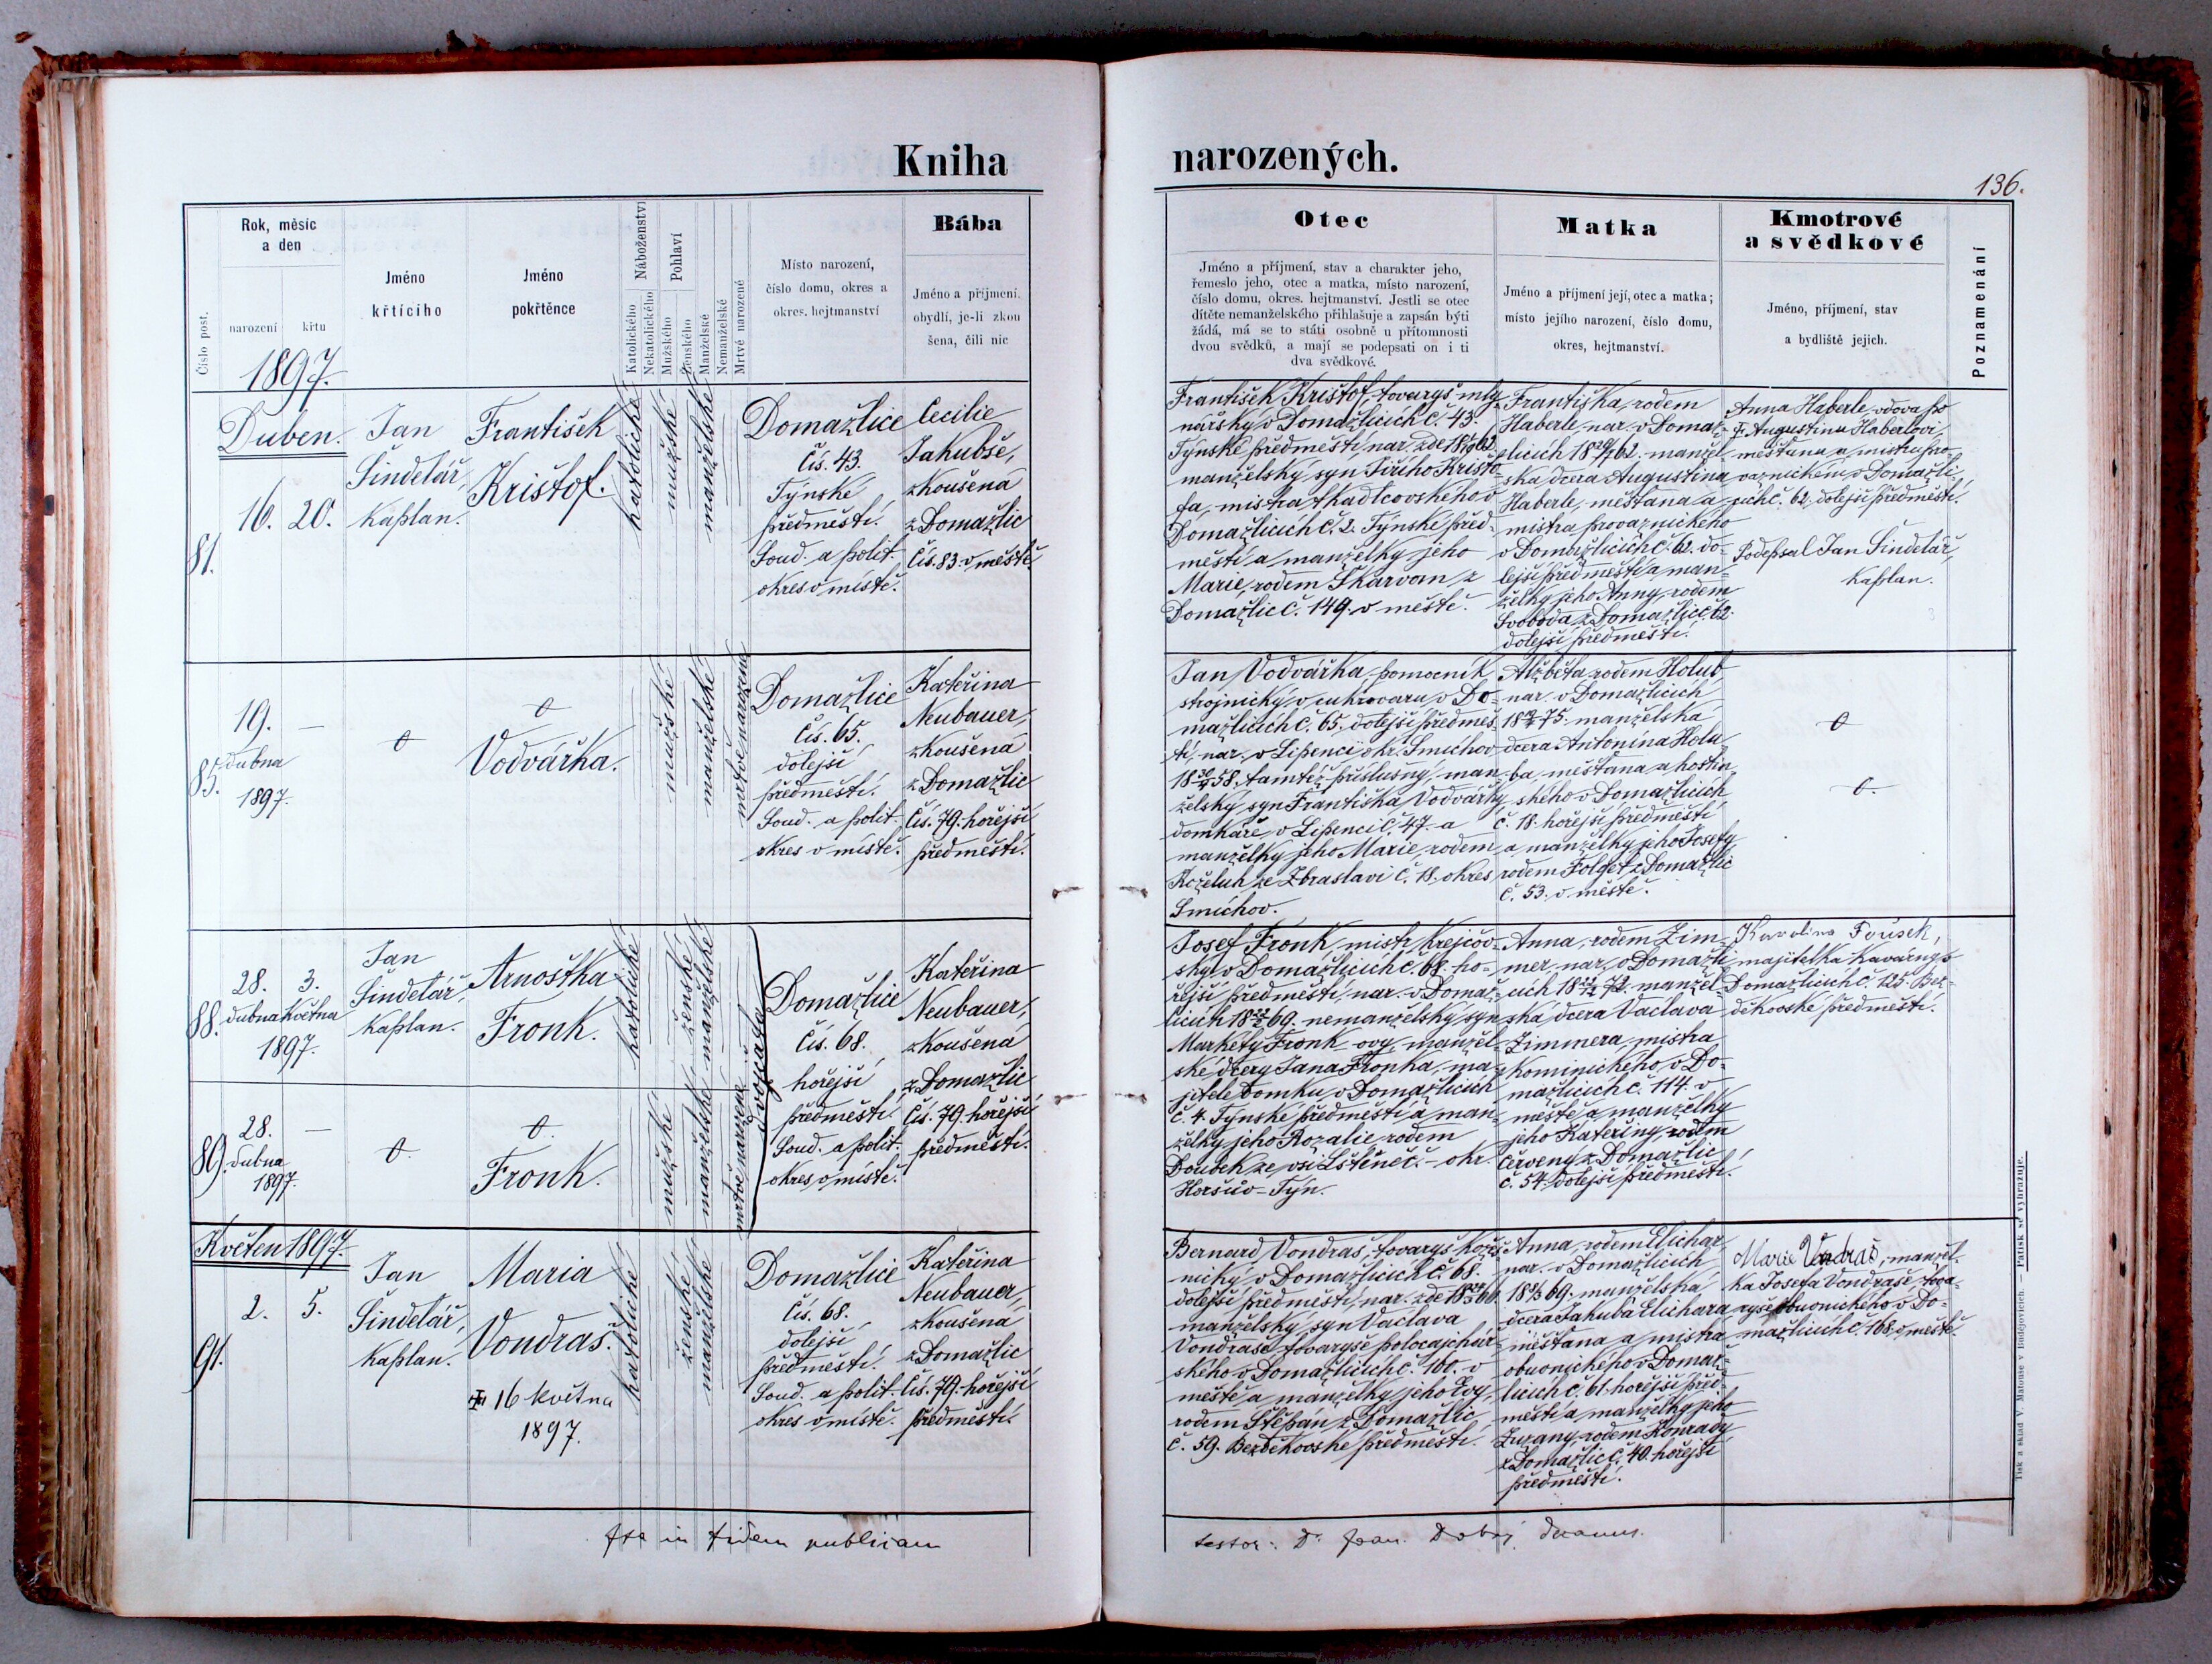 Kniha
narozených.
136.
Rok, měsíc
a den
Číslo post.
narození
křtu
1897.
Jméno
křtícího
Jméno
pokřtěnce
Náboženství
Katolického
Nekatolického
Pohlaví
Mužského
Ženského
Manželské
Nemanželské
Mrtvě narozené
Místo narození,
číslo domu, okres a
okres. hejtmanství
Bába
Jméno a příjmení,
obydlí, je-li zkou
šena, čili nic
Otec
Jméno a příjmení, stav a charakter jeho,
řemeslo jeho, otec a matka, místo narození,
číslo domu, okres. hejtmanství. Jestli se otec
dítěte nemanželského přihlašuje a zapsán býti
žádá, má se to státi osobně u přítomnosti
dvou svědků, a mají se podepsati on i ti
dva svědkové.
Matka
Jméno a příjmení její, otec a matka;
místo jejího narození, číslo domu,
okres, hejtmanství.
Kmotrové
a svědkové
Jméno, příjmení, stav
a bydliště jejich.
Poznamenání
Duben.
16. 20.
81.
Jan
Šindelář,
kaplan.
František
Krištof.
katolické
mužské
manželské
Domažlice
čís. 43.
Týnské
předměstí.
Soud. a polit.
okres v místě.
Cecilie
Jakubše,
zkoušená
z Domažlic
čís. 83. v městě.
František Krištof, tovaryš mly-
nářský v Domažlicích č. 43.
Týnské předměstí, nar. zde
manželský syn Jiřího Krišto-
fa, mistra tkadlcovského v
Domažlicích č. 2. Týnské před-
městí a manželky jeho
Marie, rodem Škarvan z
Domažlic č. 149. v městě.
Františka, rodem
Haberle, nar. v Domaž-
licích manžel-
ská dcera Augustina
Haberle, měšťana a
mistra provaznického
v Domažlicích č. 62. do-
lejší předměstí a man-
želky jeho Anny, rodem
Svoboda z Domažlic č. 62.
dolejší předměstí.
Anna Haberle, vdova po
† Augustinu Haberlovi,
měšťanu a mistru pro-
vaznickém v Domažli-
cích č. 62. dolejší předměstí.
Podepsal Jan Šindelář,
kaplan.
19. —
dubna
85.
1897.
Vodvářka.
mužské
manželské
mrtvě narozené
Domažlice
čís. 65.
dolejší
předměstí.
Soud. a polit.
okres v místě.
Kateřina
Neubauer,
zkoušená
z Domažlic
čís. 79. hořejší
předměstí.
Jan Vodvářka, pomocník
strojnický v cukrovaru v Do-
mažlicích č. 65. dolejší předměs-
tí, nar. v Lipenci okr. Smíchov
tamtéž příslušný, man-
želský syn Františka Vodvářky,
domkáře v Lipenci č. 47. a
manželky jeho Marie, rodem
Koželuh ze Zbraslavi č. 18. okres
Smíchov.
Alžběta, rodem Holub,
nar. v Domažlicích
manželská
dcera Antonína Holu-
ba, měšťana a hostin-
ského v Domažlicích
č. 18. hořejší předměstí
a manželky jeho Josefy,
rodem Folget z Domažlic
č. 53. v městě.
28. 3.
dubna května
88.
1897.
Jan
Šindelář,
kaplan.
Arnoštka
Fronk.
katolické
ženské
manželské
Dvojčata
Domažlice
čís. 68.
hořejší
předměstí.
Soud. a polit.
okres v místě.
Kateřina
Neubauer,
zkoušená
z Domažlic
čís. 79. hořejší
předměstí.
Josef Fronk, mistr krejčov-
ský v Domažlicích č. 68. ho-
řejší předměstí, nar. v Domaž-
licích nemanželský syn
Markéty Fronk-ovy, manžel-
ské dcery Jana Fronka, ma-
jitele domku v Domažlicích
č. 4. Týnské předměstí a man-
želky jeho Rozalie, rodem
Doubek ze vsi Lštění č. - okr.
Horšův-Týn.
Anna, rodem Zim-
mer, nar. v Domažli-
cích manžel-
ská dcera Václava
Zimmera, mistra
kominického v Do-
mažlicích č. 114. v
městě a manželky
jeho Kateřiny, rodem
Červený z Domažlic
č. 54. dolejší předměstí.
Karolina Fousek,
majitelka kavárny v
Domažlicích č. 125. Bez-
děkovské předměstí.
28. —
89. dubna
1897.
Fronk.
mužské
manželské
mrtvě narozené
Květen 1897.
2. 5.
91.
Jan
Šindelář,
kaplan.
Maria
Vondraš.
16 května
1897.
katolické
ženské
manželské
Domažlice
čís. 68.
dolejší
předměstí.
Soud. a polit.
okres v místě.
Kateřina
Neubauer,
zkoušená
z Domažlic
čís. 79. hořejší
předměstí.
Bernard Vondraš, tovaryš kožeš-
nický v Domažlicích č. 68.
dolejší předměstí, nar. zde
manželský syn Václava
Vondraše, tovaryše
v Domažlicích č. 160. v
městě a manželky jeho Evy,
rodem Štěpán z Domažlic
č. 59. Bezděkovské předměstí.
Anna, rodem Elichar,
nar. v Domažlicích
manželská
dcera Jakuba Elichara,
měšťana a mistra
obuvnického v Domaž-
licích č. 61. hořejší před-
městí a manželky jeho
Zuzany, rodem Konrady
z Domažlic č. 40. hořejší
předměstí.
Marie Vondraš, manžel-
ka Josefa Vondraše, tova-
ryše obuvnického v Do-
mažlicích č. 168. v městě.
in fidem publicam
testor: Dr. Dobrý
Tisk a sklad V. Matouše v Budějovicích. — Patisk se vyhrazuje.